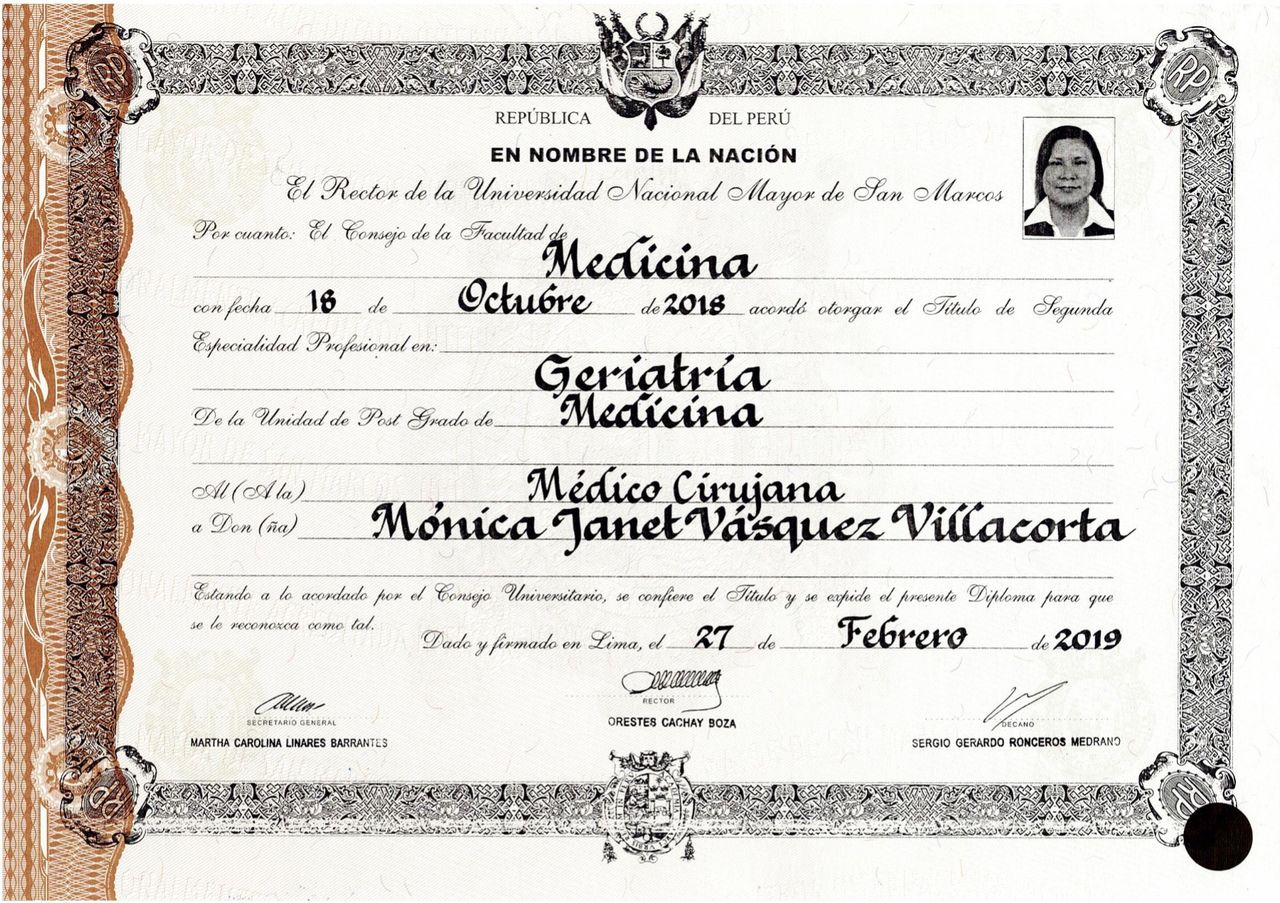 REPÚBLICA DEL PERÚ
EN NOMBRE DE LA NACIÓN
El Rector de la Universidad Nacional Mayor de San Marcos
Por cuanto: El Consejo de la Facultad de
Medicina
con fecha 18 de Octubre de 2018 acordó otorgar el Título de Segunda
Especialidad Profesional en:
Geriatría
De la Unidad de Post Grado de Medicina
Al (A la) Médico Cirujana
a Don (ña) Mónica Janet Vásquez Villacorta
Estando a lo acordado por el Consejo Universitario, se confiere el Título y se expide el presente Diploma para que
se le reconozca como tal.
Dado y firmado en Lima, el 27 de Febrero de 2019
SECRETARIO GENERAL
MARTHA CAROLINA LINARES BARRANTES
RECTOR
ORESTES CACHAY BOZA
DECANO
SERGIO GERARDO RONCEROS MEDRANO
RP
RP
RP
RP